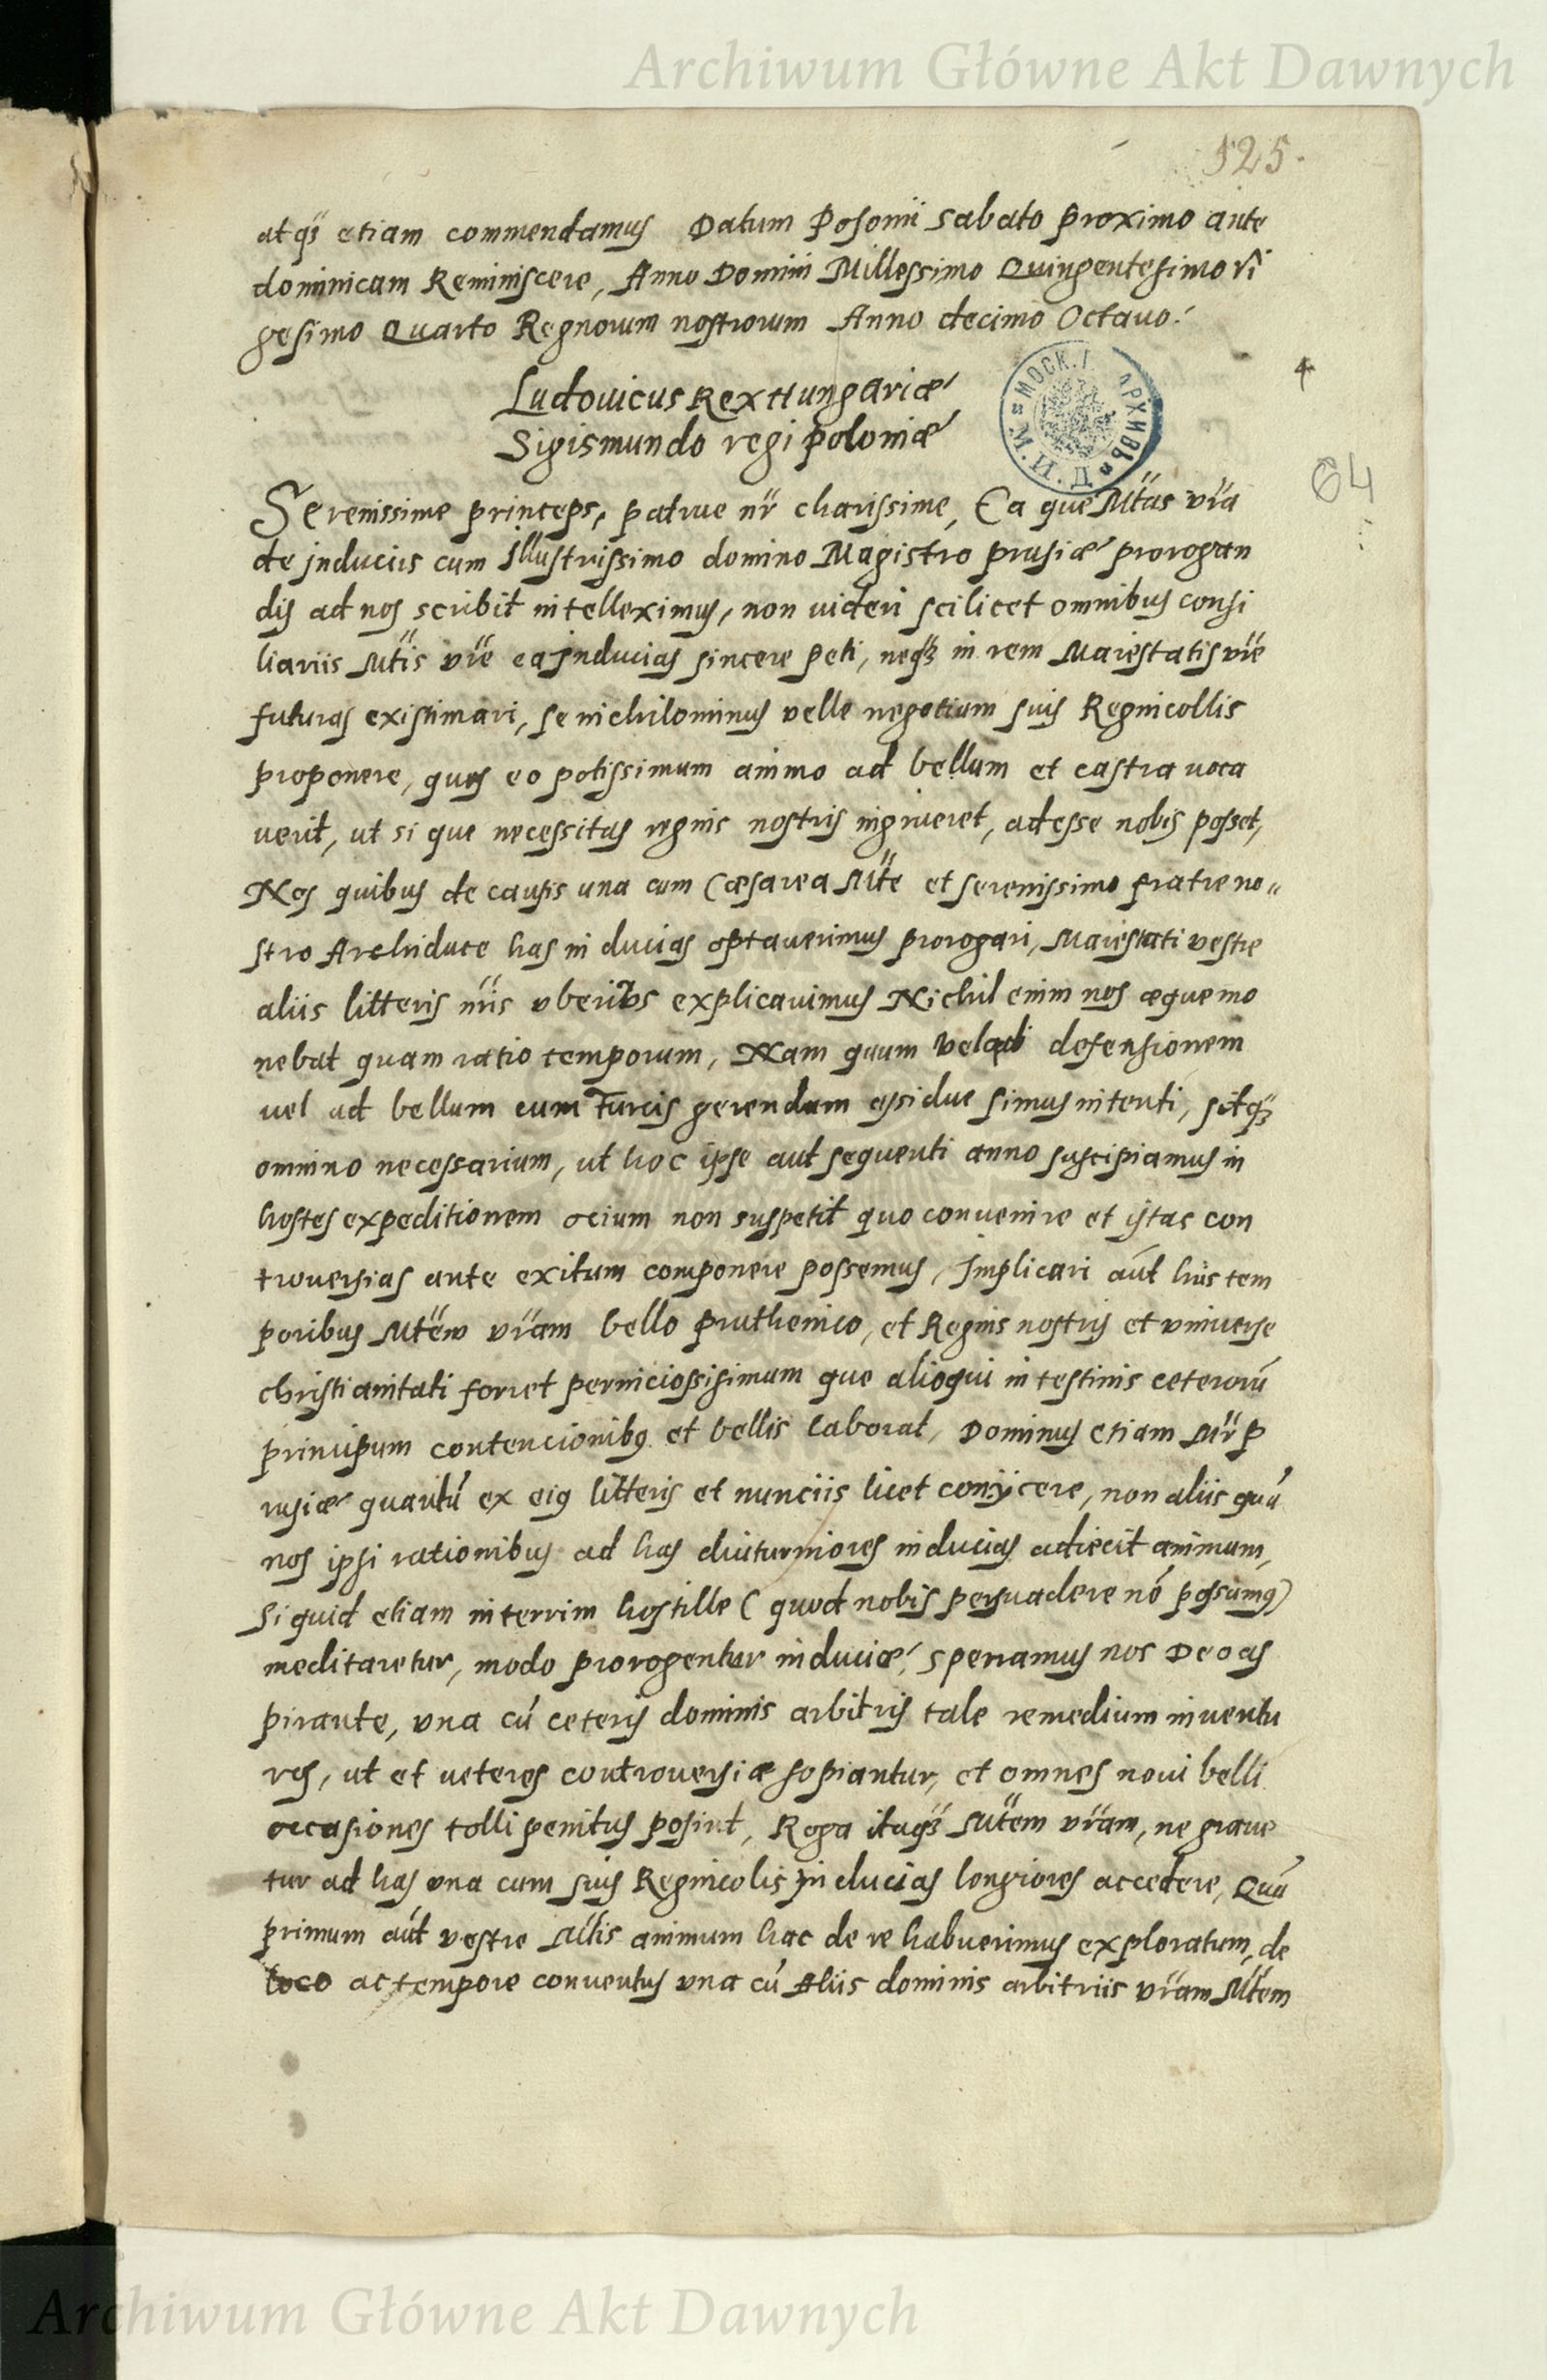 Archiwum Główne Akt Dawnych
525.
atq3 etiam commendamus Datum Posonii Sabato proximo ante
dominicam Reminiscere, Anno Domini Millessimo Quingentesimo vi
gesimo Quarto Regnorum nostrorum Anno decimo Octavo.
Ludouicus Rex Hungariæ
Sigismundo regi poloniæ
МОСК. Г АРХИВЪ Д. И. М.
64
Serenissime princeps, patrue nr charissime, Ea que Mtas vra
de jnduciis cum Illustrissimo domino Magistro prusiæ prorogan
dis ad nos scribit intelleximus, non uideri scilicet omnibus consi
liariis Mtis vre eas Inducias sincere peti, neq3 in rem Maiestatis vre
futuras existimari, se nichilominus velle negotium suis Regnicollis
proponere, quos eo potissimum animo ad bellum et castra uoca
uerit, ut si que necessitas regnis nostris ingrueret, adesse nobis posset,
Nos quibus de causis una cum Cæsarea Mte et serenissimo fratre no„
stro Archiduce has in ducias optauerimus prorogari, Maiestati vestre
aliis litteris nris vberius explicauimus Nichil enim nos æque mo
nebat quam ratio temporum, Nam quum vel ad defensionem
uel ad bellum cum Turcis gerendum assidue simus intenti, sitq3
omnino necessarium, ut hoc ipse aut sequenti anno suscipiamus in
hostes expeditionem ocium non suspetit quo conuenire et istas con
trouersias ante exitum componere possemus, Implicari aut hiis tem
poribus Mtem vram bello pruthenico, et Regnis nostris et vniuerse
christianitati forret perniciossisimum que alioqui in testinis ceterorū
principum contencionibus et bellis laborat, Dominus etiam Mr p
rusiæ quantū ex eius litteris et nunciis licet coniijcere, non aliis quā
nos ipsi rationibus ad has diuturniores inducias adiecit animum,
Si quid etiam interrim hostille ( quod nobis persuadere nō possumus)
meditaretur, modo prorogentur induciæ, speramus nos Deo as
pirante, vna cū ceteris dominis arbitris tale remedium inuentu
ros, ut et ueteres controuersiæ sopiantur, et omnes noui belli
occasiones tolli penitus posint, Roga itaq3 Mtem vram, ne graue
tur ad has vna cum suis Regnicolis in ducias longiores accedere, Quā
primum aut vestre Mtis animum hac de re habuerimus exploratum, de
loco ac tempore conuentus vna cū Aliis dominis arbitriis vram Mtem
Archiwum Główne Akt Dawnych